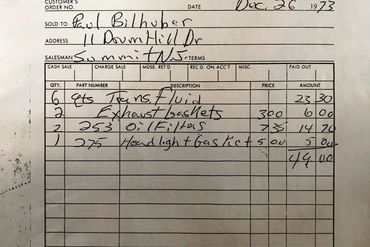 CUSTOMER'S ORDER NO. DATE Dec. 26 1973
SOLD TO Paul Bilhuber
ADDRESS 11 Drum Hill Dr
SALESMAN Summit N.J. TERMS
CASH SALE CHARGE SALE MDSE. RET'D REC'D. ON ACC'T MISC. PAID OUT
QTY. PART NUMBER DESCRIPTION PRICE AMOUNT
6 qts Trans. Fluid 23 30
2 Exhaust Gaskets 300 6 00
2 253 Oil Filters 735 14 70
1 275 Headlight Gasket 5.00 5 00
49 00